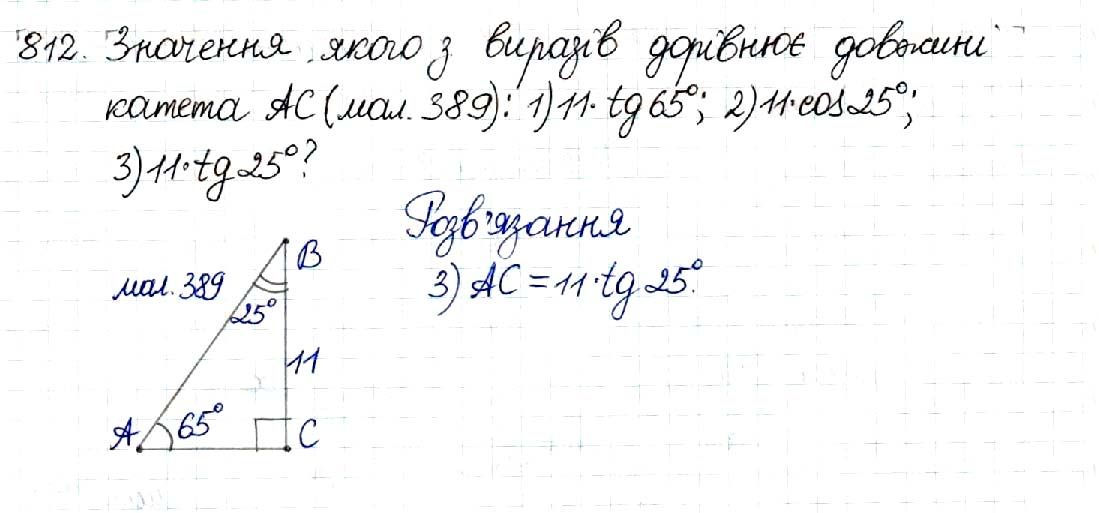 812. Значення якого з виразів дорівнює довжині
катета AC (мал. 389): 1) 11· tg 65°; 2) 11·cos 25°;
3) 11·tg 25°?
Розв'язання
B
мал. 389
3) AC = 11·tg 25°.
25°
11
A 65° C